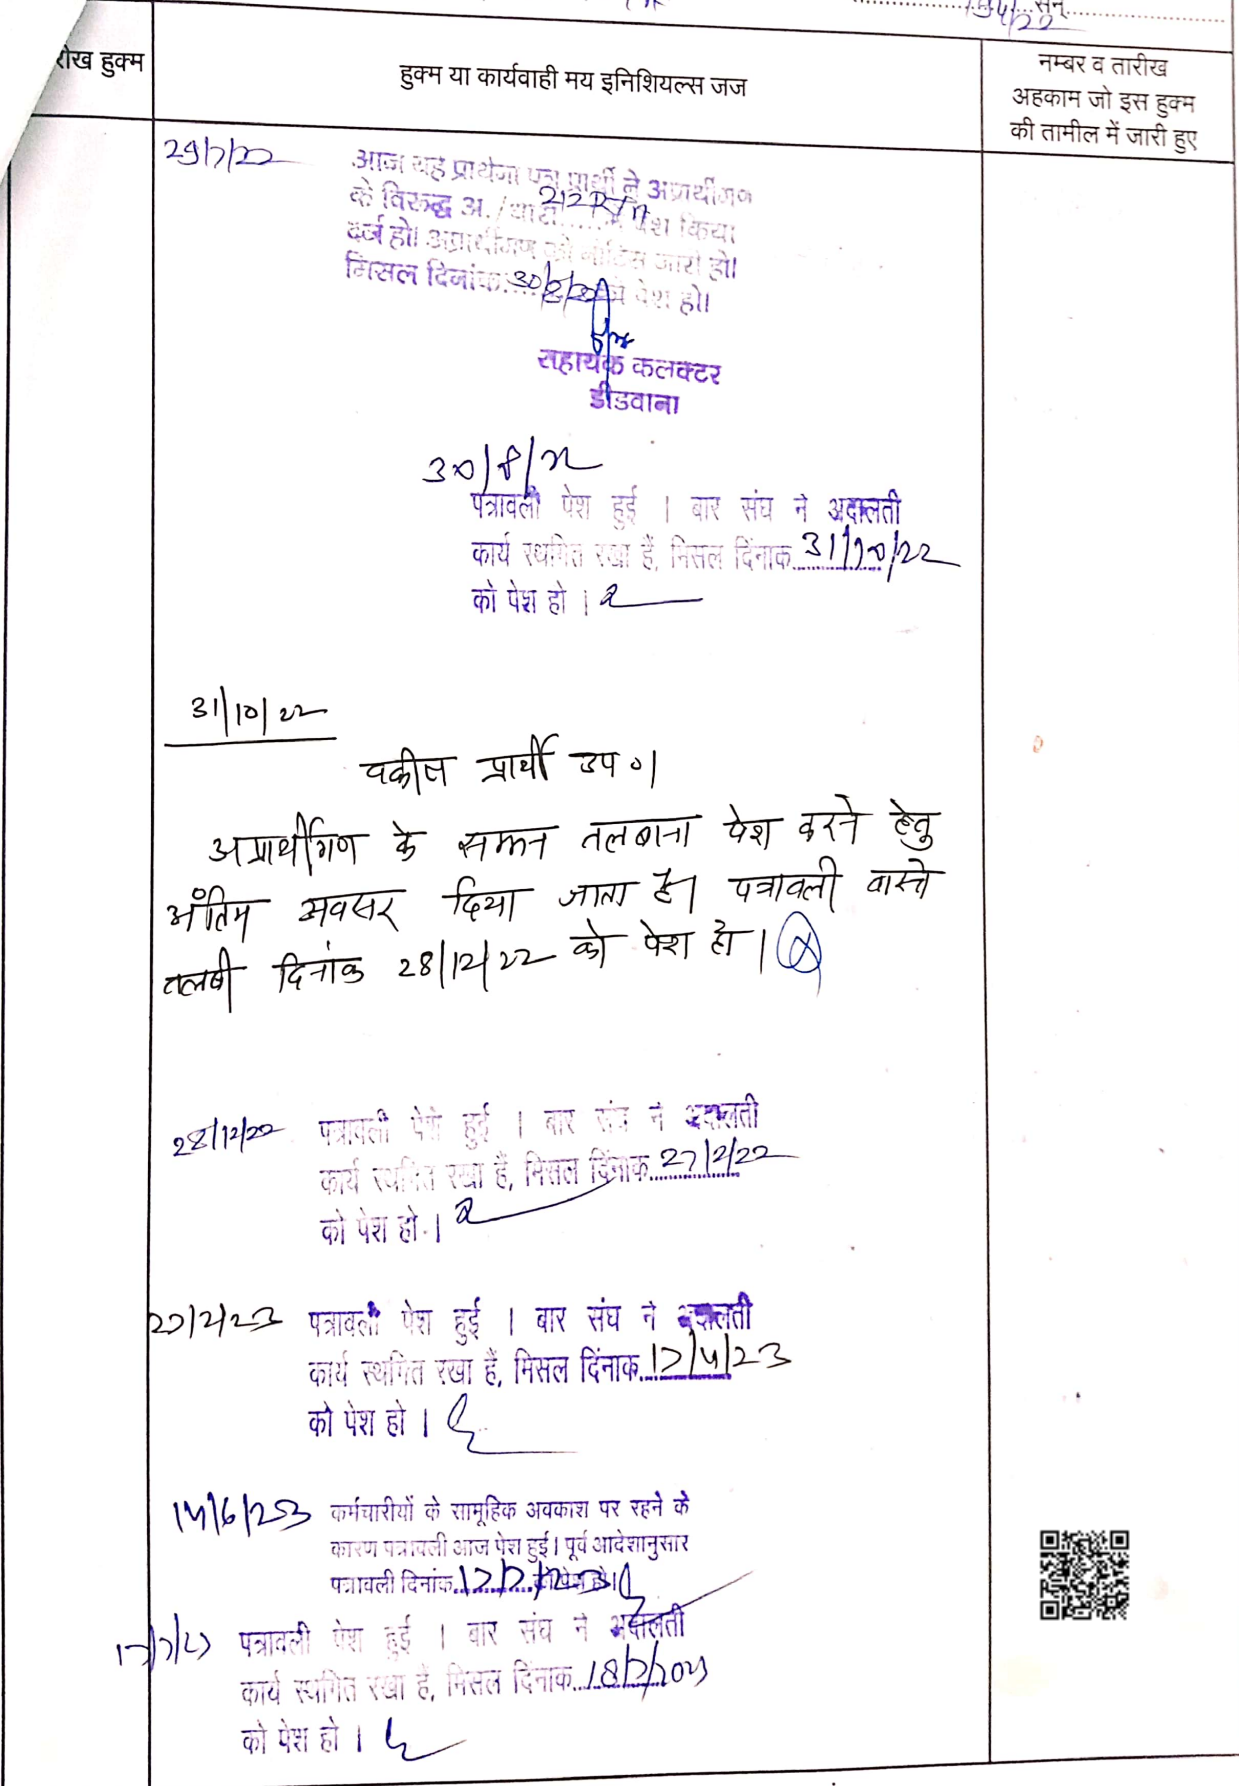 154/22 सन्
रीख हुक्म
हुक्म या कार्यवाही मय इनिशियल्स जज
नम्बर व तारीख
अहकाम जो इस हुक्म
की तामील में जारी हुए
29/7/22
आज यह प्रार्थना पत्र प्रार्थी ने अप्रार्थीगण
के विरुद्ध अ./धारा 212 RTA पेश किया
दर्ज हो। अप्रार्थीगण को नोटिस जारी हो।
मिसल दिनांक 30/8/22 को पेश हो।
सहायक कलक्टर
डीडवाना
30/8/22
पत्रावली पेश हुई । बार संघ ने अदालती
कार्य स्थगित रखा हैं, मिसल दिंनाक 31/10/22
को पेश हो ।
31/10/22
वकील प्रार्थी उप०।
अप्रार्थीगण के सम्मन तलबाना पेश करने हेतु
अंतिम अवसर दिया जाता है। पत्रावली वास्ते
तलबी दिनांक 28/12/22 को पेश हो।
28/12/22 पत्रावली पेश हुई । बार संघ ने अदालती
कार्य स्थगित रखा हैं, मिसल दिंनाक 27/2/22
को पेश हो ।
27/2/23 पत्रावली पेश हुई । बार संघ ने अदालती
कार्य स्थगित रखा हैं, मिसल दिंनाक 17/4/23
को पेश हो ।
कर्मचारीयों के सामूहिक अवकाश पर रहने के
कारण पत्रावली आज पेश हुई। पूर्व आदेशानुसार
पत्रावली दिनांक को पेश हो।
17/7/23 पत्रावली पेश हुई । बार संघ ने अदालती
कार्य स्थगित रखा हैं, मिसल दिंनाक
को पेश हो ।